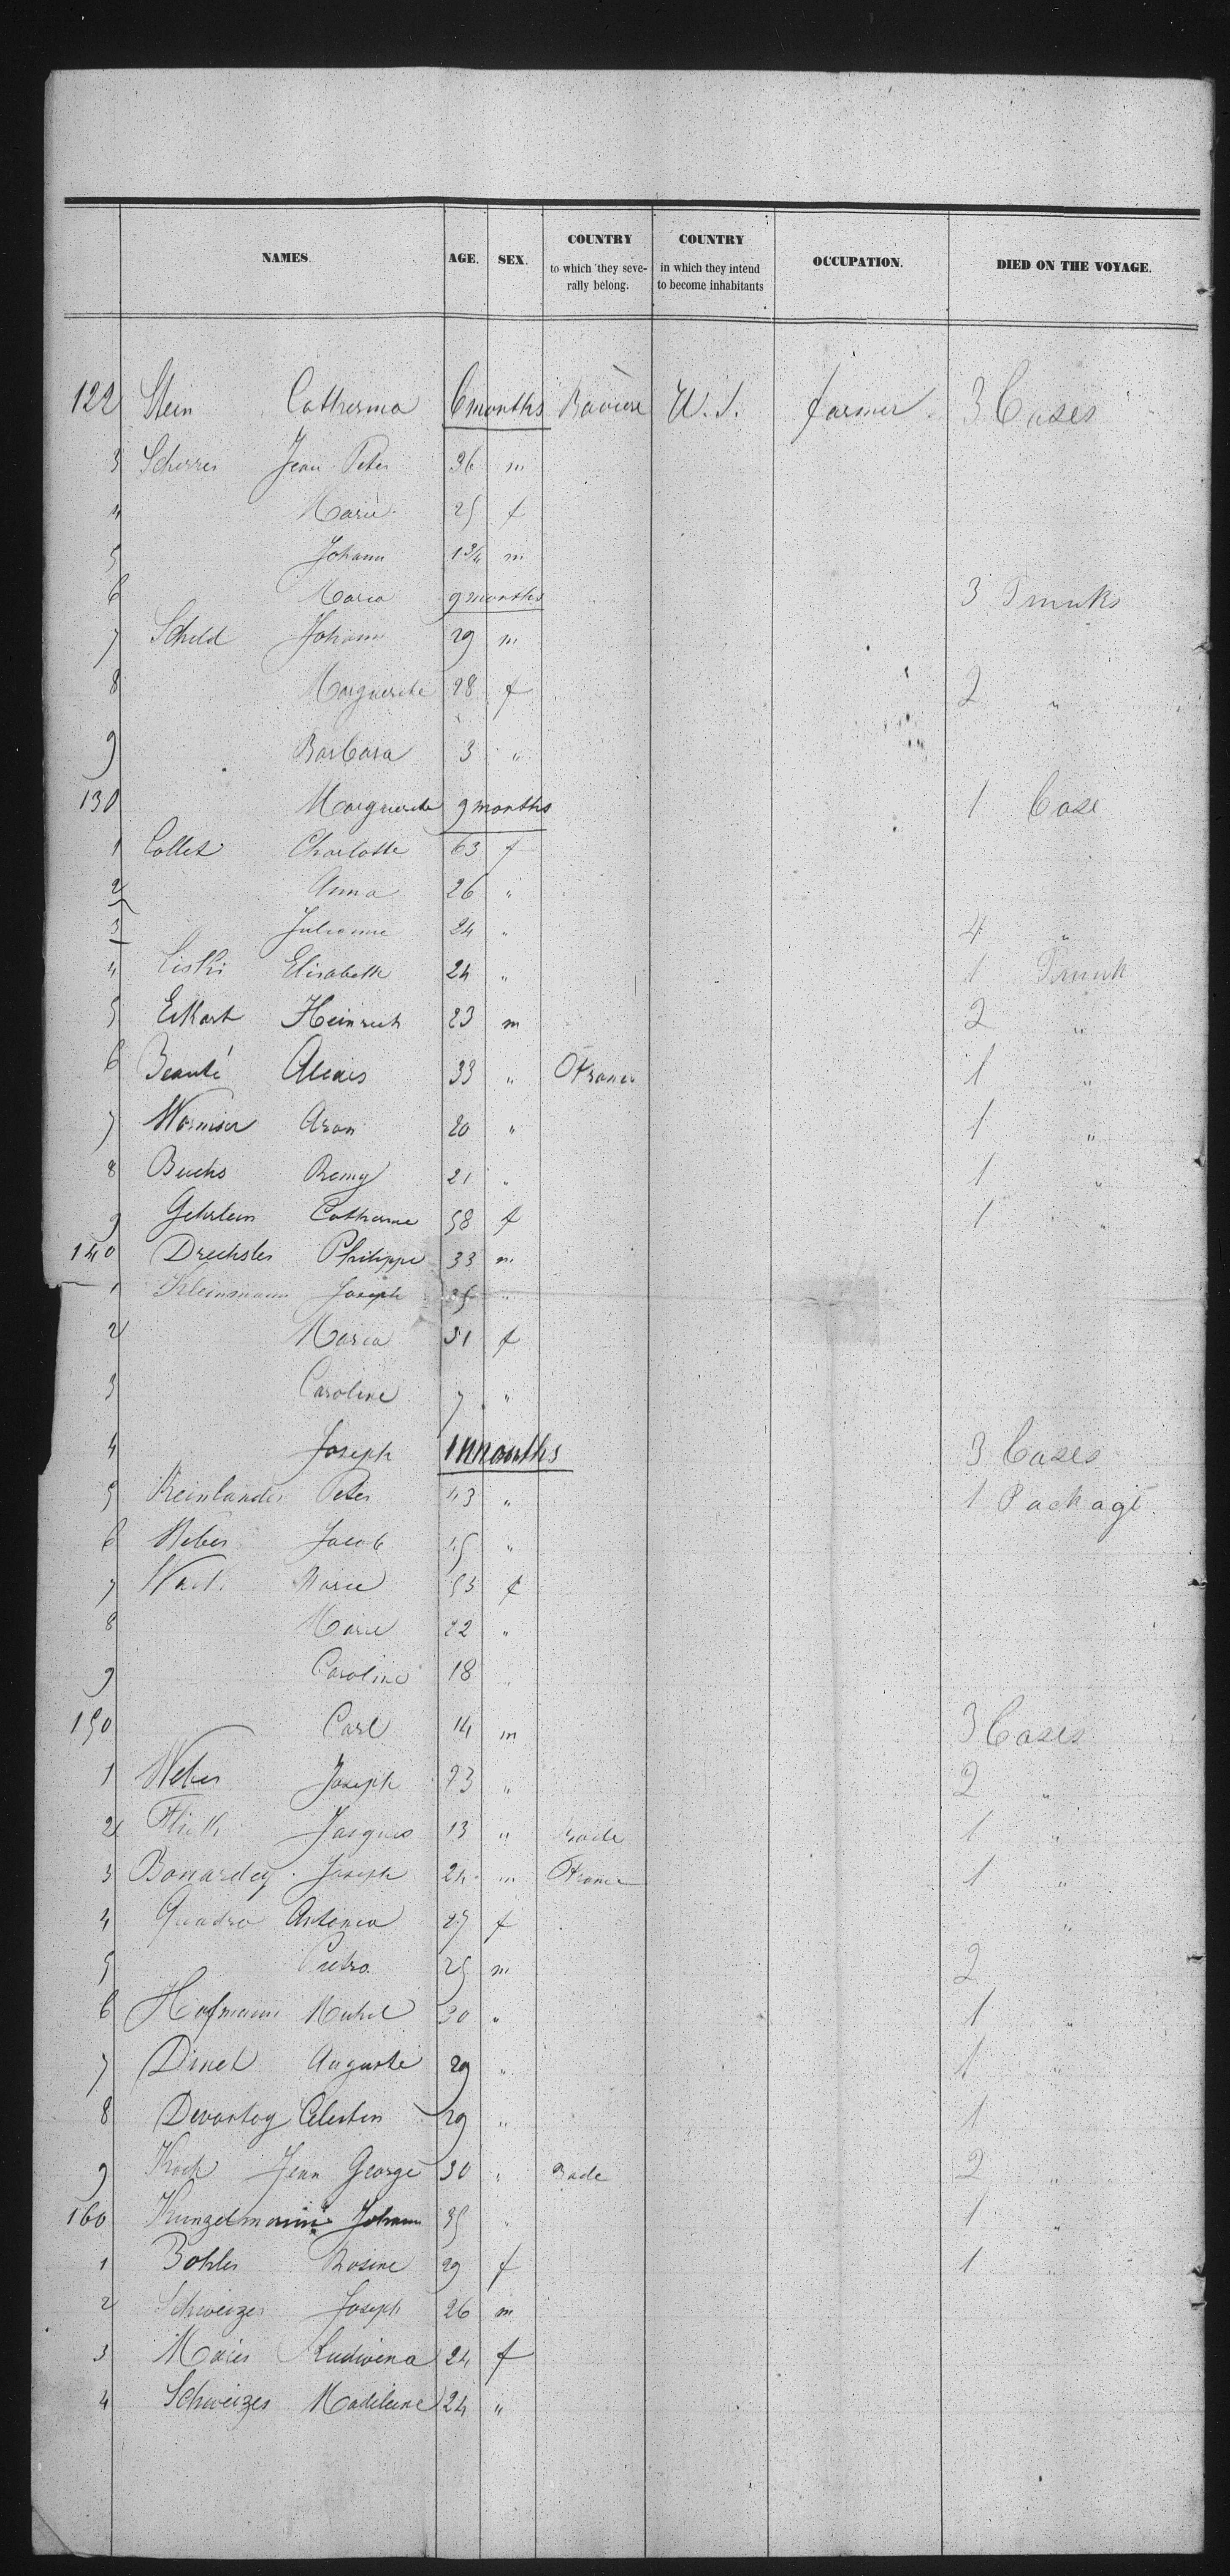 NAMES. AGE. SEX. COUNTRY to which they seve- rally belong. COUNTRY in which they intend to become inhabitants OCCUPATION. DIED ON THE VOYAGE.
122 Stein Catherina 6 months Bavière U.S. farmer 3 Cases
3 Scherrer Jean Peter 36 m
4 Marie 25 f
5 Johann 1 3/4 m
6 Maria 9 months 3 Trunks
7 Scheld Johann 29 m
8 Marguerite 28 f 2 "
9 Barbara 3 "
130 Marguerite 9 months 1 Case
1 Collet Charlotte 63 f
2 Anna 26 "
3 Julienne 24 " 4 "
4 Liski Elisabeth 24 " 1 Trunk
5 Eckart Heinrich 23 m 2 "
6 Beauté Alexis 33 " France 1 "
7 Wormser Aron 20 " 1 "
8 Buchs Remy 21 " 1 "
9 Gehrlein Catherine 58 f 1 "
140 Drechsler Philippe 33 m
1 Kleinmann Joseph 35 "
2 Maria 31 f
3 Caroline 7 "
4 Joseph 11 months 3 Cases
5 Reinlander Peter 43 " 1 Package
6 Weber Jacob 45 "
7 Marie 53 f
8 Marie 22 "
9 Caroline 18 "
150 Carl 14 m 3 Cases
1 Weber Joseph 23 " 2 "
2 Flick Jacques 13 " Bade 1 "
3 Bonardey Joseph 24 m France 1 "
4 Quadro Antonia 27 f "
5 Pietro 25 m 2
6 Hofmann Michel 30 " 1 "
7 Dinel Auguste 29 " 1 "
8 Devantoy Celestin 29 " 1
9 Koch Jean George 30 " Bade 2 "
160 Kunzelmann Johann 35 " 1 "
1 Bohler Rosine 29 f 1 "
2 Schweizer Joseph 26 m
3 Maier Ludwina 24 f
4 Schweizer Madeleine 24 "